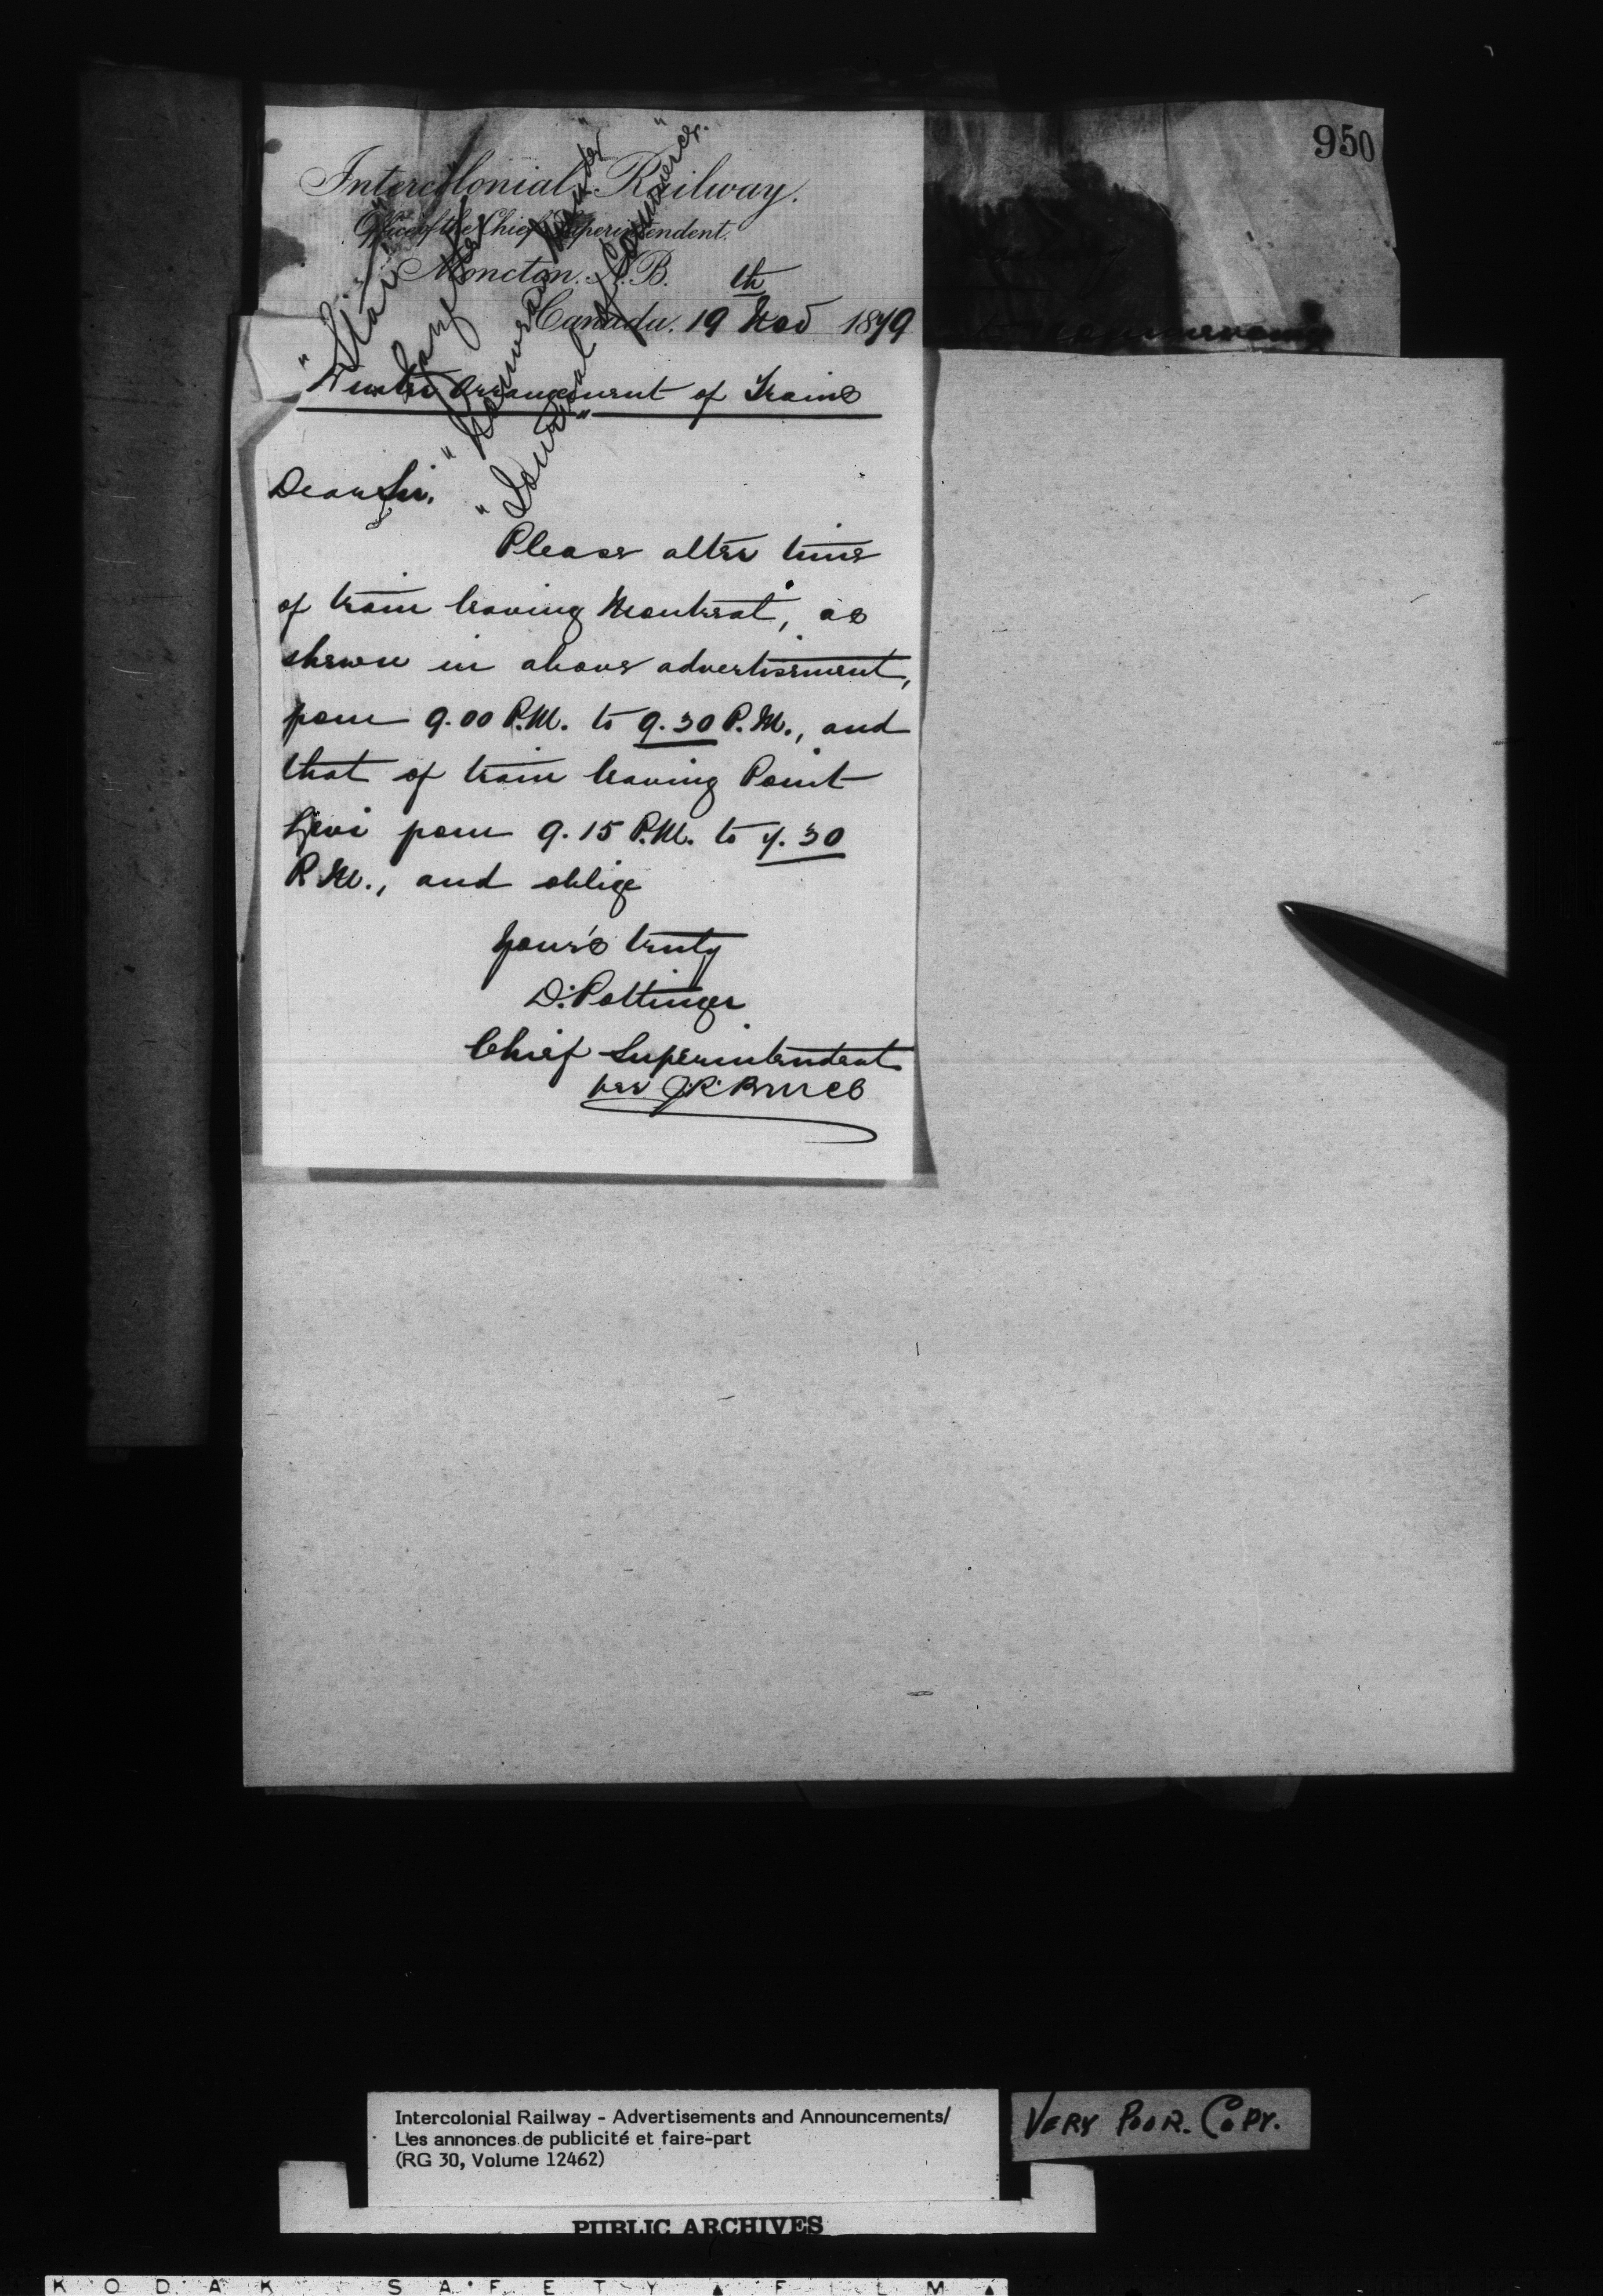 950
Intercolonial Railway.
Office of the Chief Superintendent.
Moncton. N.B.
Canada. 19th Nov 1879
"Star"
"Gazette"
"Kamouraska"
"Journal of Commerce."
Winter Arrangement of Trains
Dear Sir,
Please alter time
of train leaving Montreal, as
shewn in above advertisement,
from 9.00 P.M. to 9.30 P.M., and
that of train leaving Point
Levi from 9.15 P.M. to 7.30
P.M., and oblige
Your's truly
D. Pottinger
Chief Superintendent
per J.R. Bruce
Intercolonial Railway - Advertisements and Announcements/
Les annonces de publicité et faire-part
(RG 30, Volume 12462)
VERY POOR. COPY.
PUBLIC ARCHIVES
KODAK SAFETY FILM